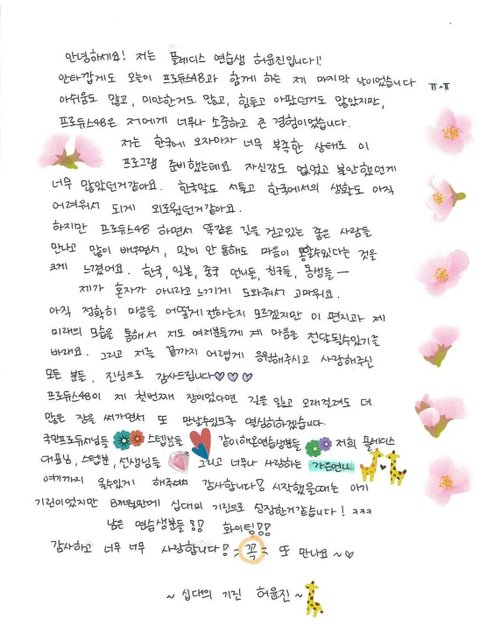 안녕하세요! 저는 플레디스 연습생 허윤진입니다!!
안타깝게도 오늘이 프로듀스48과 함께 하는 제 마지막 날이었습니다 ㅠ.ㅠ
아쉬움도 많고, 미안한것도 많고, 힘들고 아팠던것도 많았지만,
프로듀스48은 저에게 너무나 소중하고 큰 경험이었습니다.
저는 한국에 오자마자 너무 부족한 상태로 이
프로그램 준비했는데요 자신감도 없었고 불안했던게
너무 많았던거같아요. 한국말도 서툴고 한국에서의 생활도 아직
어려워서 되게 외로웠던거같아요.
하지만 프로듀스48 하면서 똑같은 길을 걷고있는 좋은 사람들
만나고 많이 배우면서, 말이 안 통해도 마음이 통할수있다는 것을
크게 느꼈어요. 한국, 일본, 중국 언니들, 친구들, 동생들 —
제가 혼자가 아니라고 느끼게 도와줘서 고마워요.
아직 정확히 마음을 어떻게 전하는지 모르겠지만 이 편지과 제
미래의 모습을 통해서 저도 여러분들께 제 마음을 전달될수있기를
바래요. 그리고 저를 끝까지 어렵게 응원해주시고 사랑해주신
모든 분들, 진심으로 감사드립니다♡♡♡
프로듀스48이 제 첫번째 장이었다면 길을 잃고 오래걸려도 더
많은 장을 써가면서 또 만날수있도록 열심히하겠습니다.
국민프로듀서님들 스텝분들 같이해온연습생분들 저희 플레디스
대표님, 스텝분, 선생님들 그리고 너무나 사랑하는 가은언니
여기까지 올수있게 해주셔서 감사합니다! 시작했을때는 아기
기린이었지만 8개월만에 십대의 기린으로 성장한거같습니다! ㅋㅋㅋ
남은 연습생분들!! 화이팅!!
감사하고 너무 너무 사랑합니다! 꼭 또 만나요~♡
~ 십대의 기린 허윤진 ~